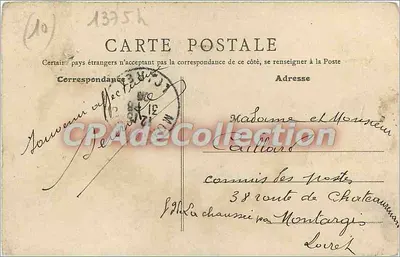 (10)
1375h
CARTE POSTALE
Certains pays étrangers n'acceptant pas la correspondance de ce côté, se renseigner à la Poste
Correspondance
Adresse
Souvenir affectueux
Madame et Monsieur
Caillard
CPAdeCollection.com
commis des postes
38 route de Chateaurenard
La chaussée par Montargis
Loiret